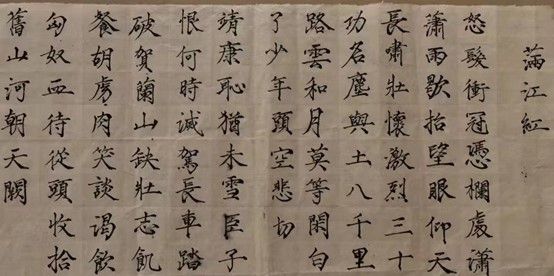 滿江紅
怒髮衝冠憑欄處瀟
瀟雨歇抬望眼仰天
長嘯壯懷激烈三十
功名塵與土八千里
路雲和月莫等閑白
了少年頭空悲切
靖康恥猶未雪臣子
恨何時滅駕長車踏
破賀蘭山缺壯志飢
餐胡虜肉笑談渴飲
匈奴血待從頭收拾
舊山河朝天闕